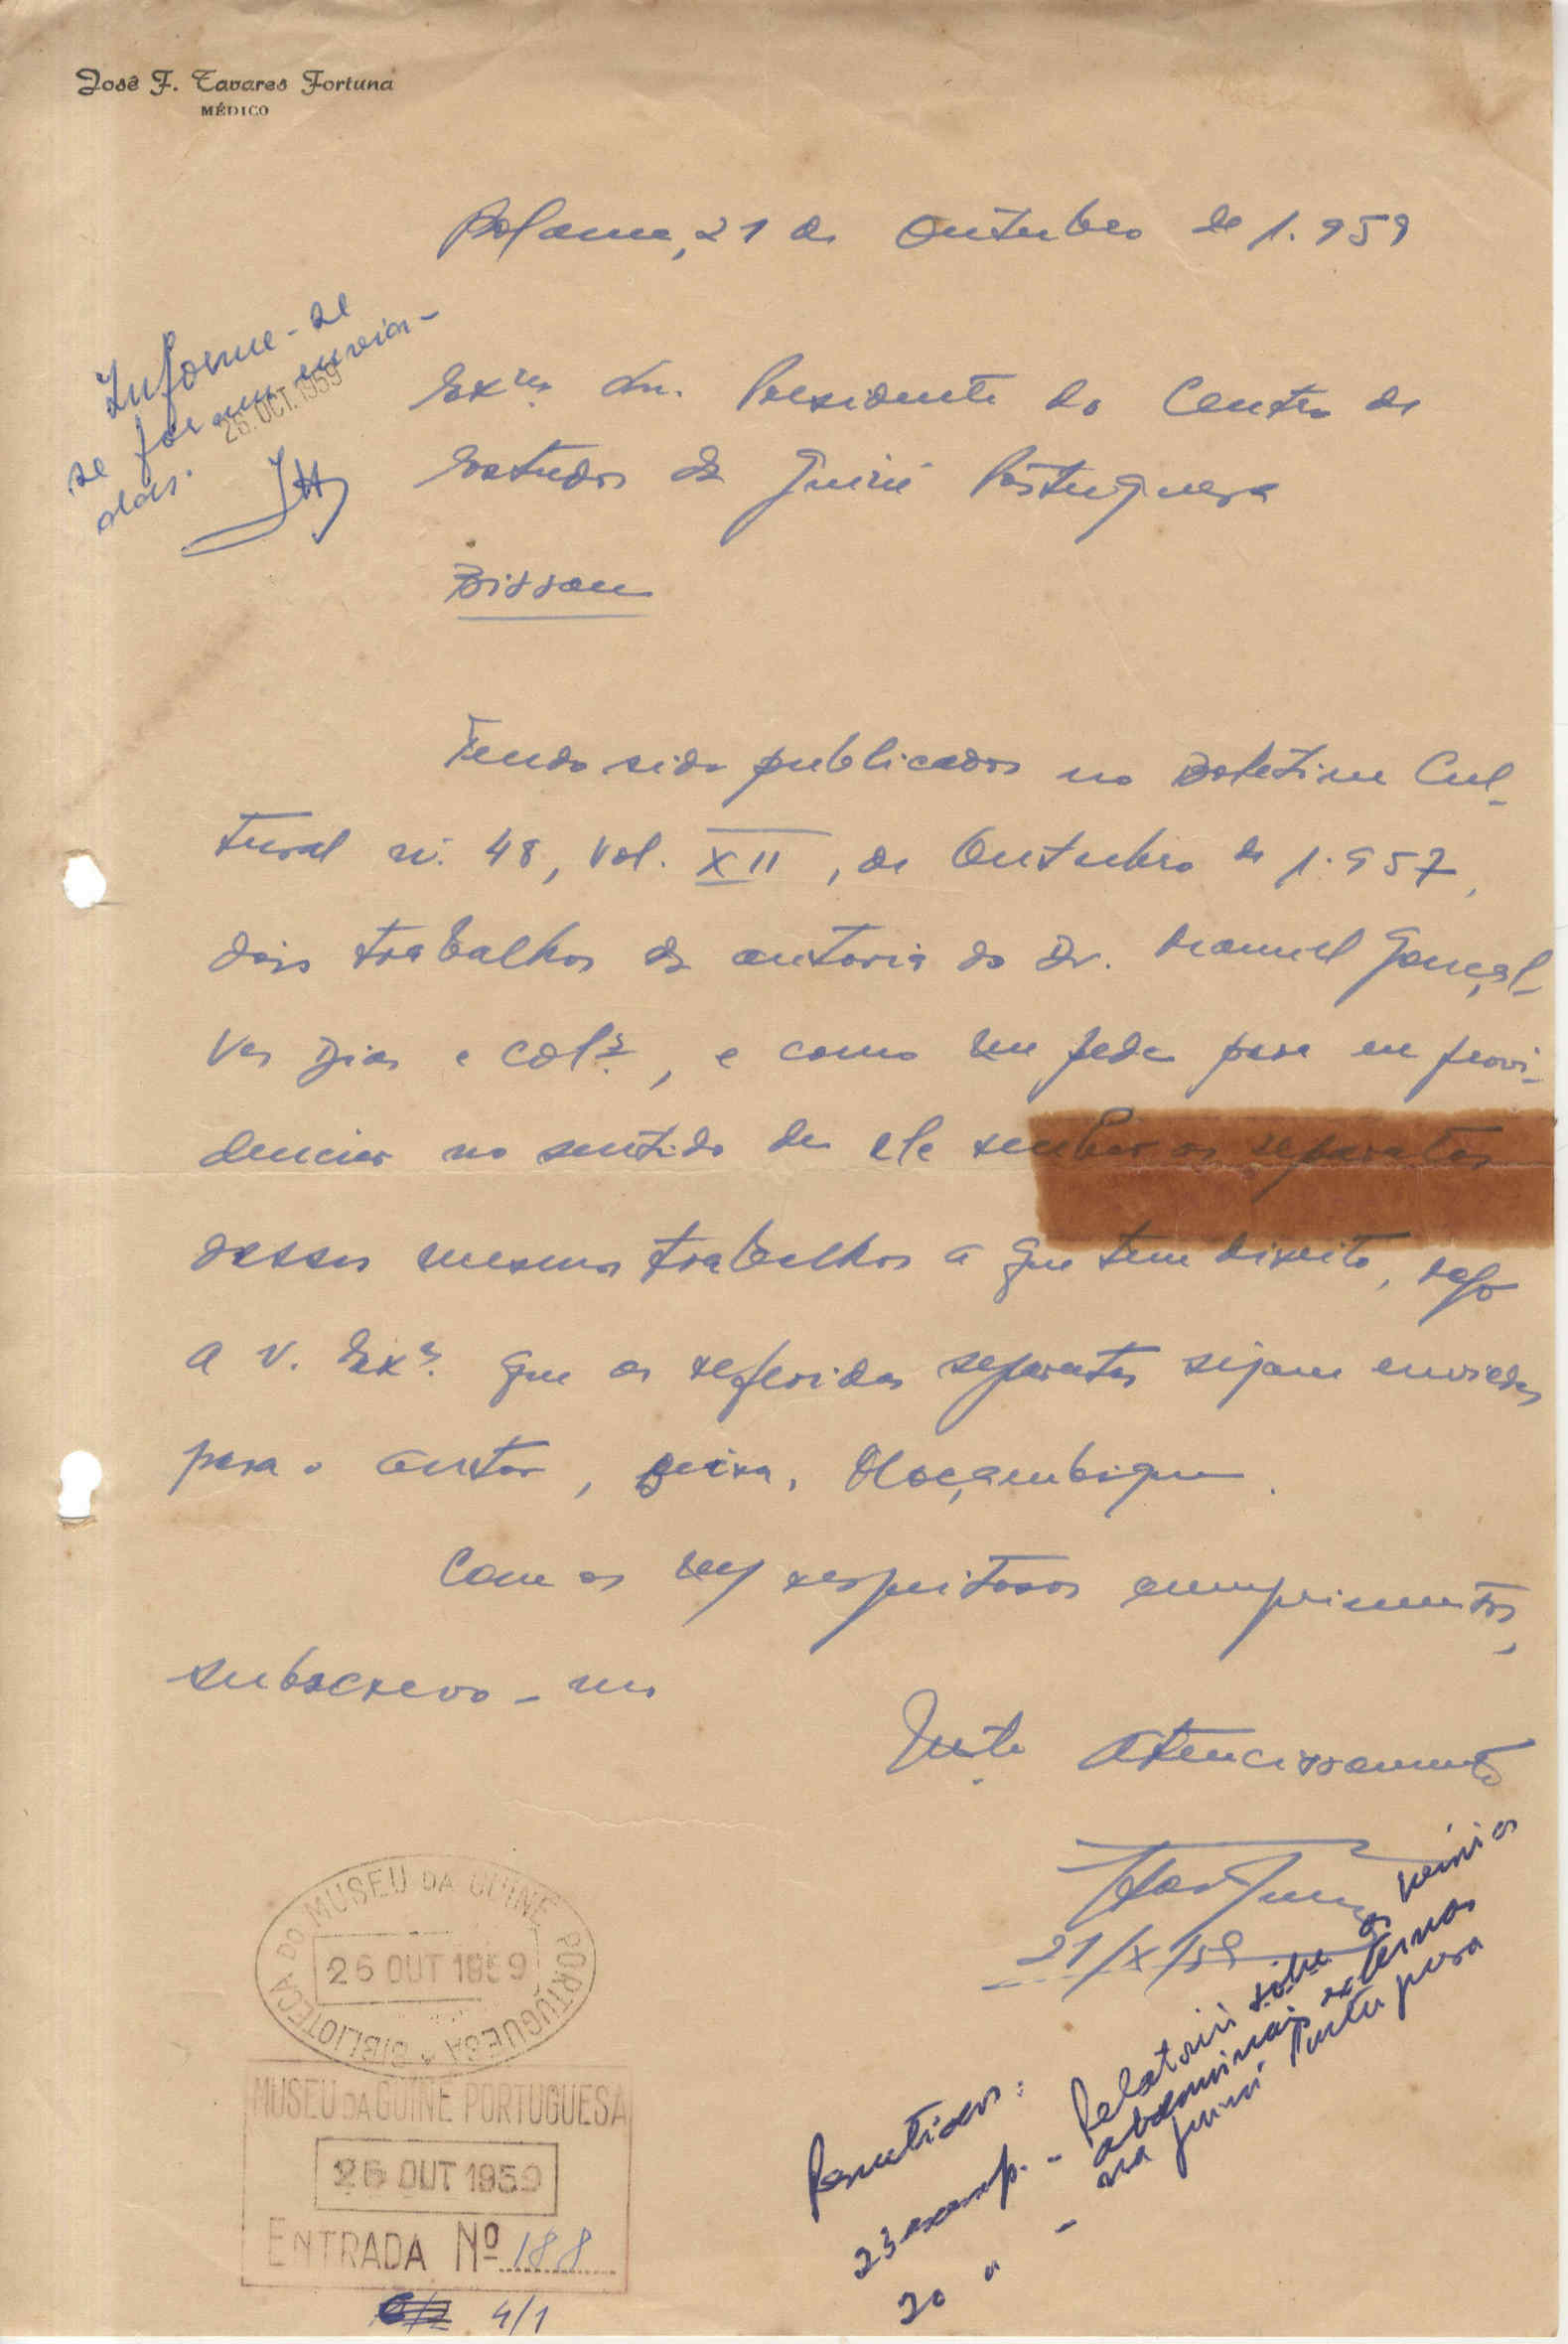 José F. Tavares Fortuna
MÉDICO
Bolama, 21 de Outubro de 1.959
Informe-se
se foram envia-
das.
26. OCT. 1959
Exmo. Snr. Presidente do Centro de
Estudos da Guiné Portuguesa
Bissau
Tendo sido publicados no Boletim Cul-
tural nº. 48, vol. XII, de Outubro de 1.957,
dois trabalhos da autoria do Dr. Manuel Gonçal-
ves Dias e col., e como me pede para eu provi-
denciar no sentido de ele receber as separatas
desses mesmos trabalhos a que tem direito, rogo
a V. Exa. que as referidas separatas sejam enviadas
para o autor, Beira, Moçambique.
Com os meus respeitosos cumprimentos,
subscrevo-me
Muito Atenciosamente
21/X/59
Remetidas:
23 exemp. - Relatório sobre as hérnias
abdominais externas
na Guiné Portuguesa
20 " -
BIBLIOTECA DO MUSEU DA GUINÉ PORTUGUESA
26 OUT 1959
MUSEU DA GUINÉ PORTUGUESA
26 OUT 1959
ENTRADA Nº 188
4/1